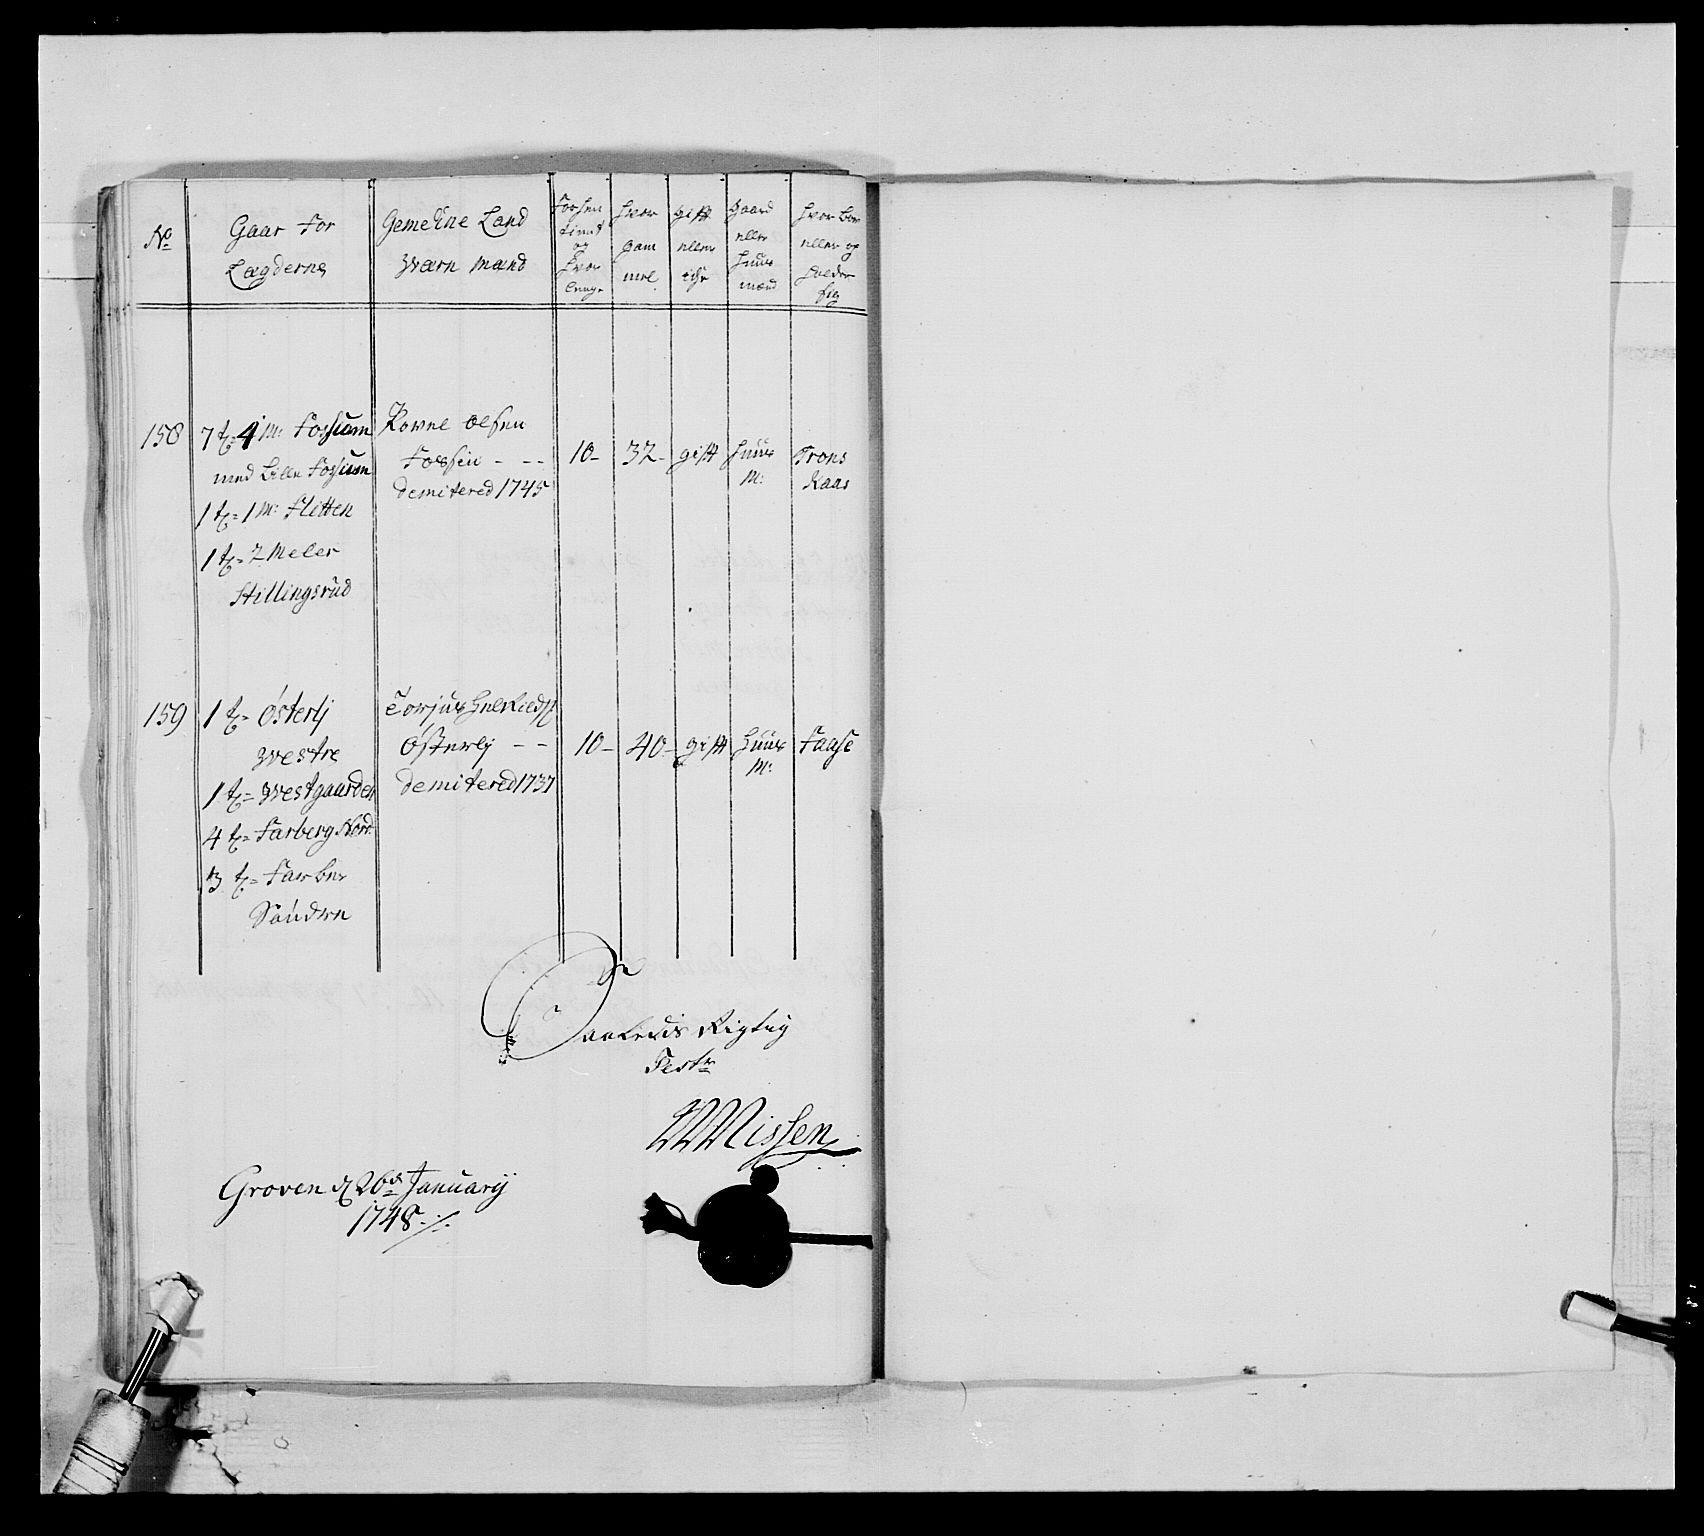 No
Gaar for
Lægderne
Gemeene Land
Wærn Mænd
Forhen
tient
og
hvor
Længe
Hvor
gam
mel
Gift
eller
ey
Gaard
eller
Huus
mænd
Hvor boer
eller op
holder
sig
158
7 t= 4 M: Fossum
med Lille Fossum
1 t= 1 M: Fletten
1 t= 2 Meler
Stillingsrud
Rovel Olsen
Fossen - - -
demitered 1745
10-
32-
gift
Huus
M:
Trons
Raas
159
1 t= Østerlj
Westre
1 t= Westgaarden
4 t= Farberg Nord:
3 t= Farber
Søndre
Torjus
Østerlj - -
demitered 1737
10-
40-
gift
Huus
M:
Faase
Saaledis Rigtig
Test
Nissen
Groven d 26de January
1748 ./.